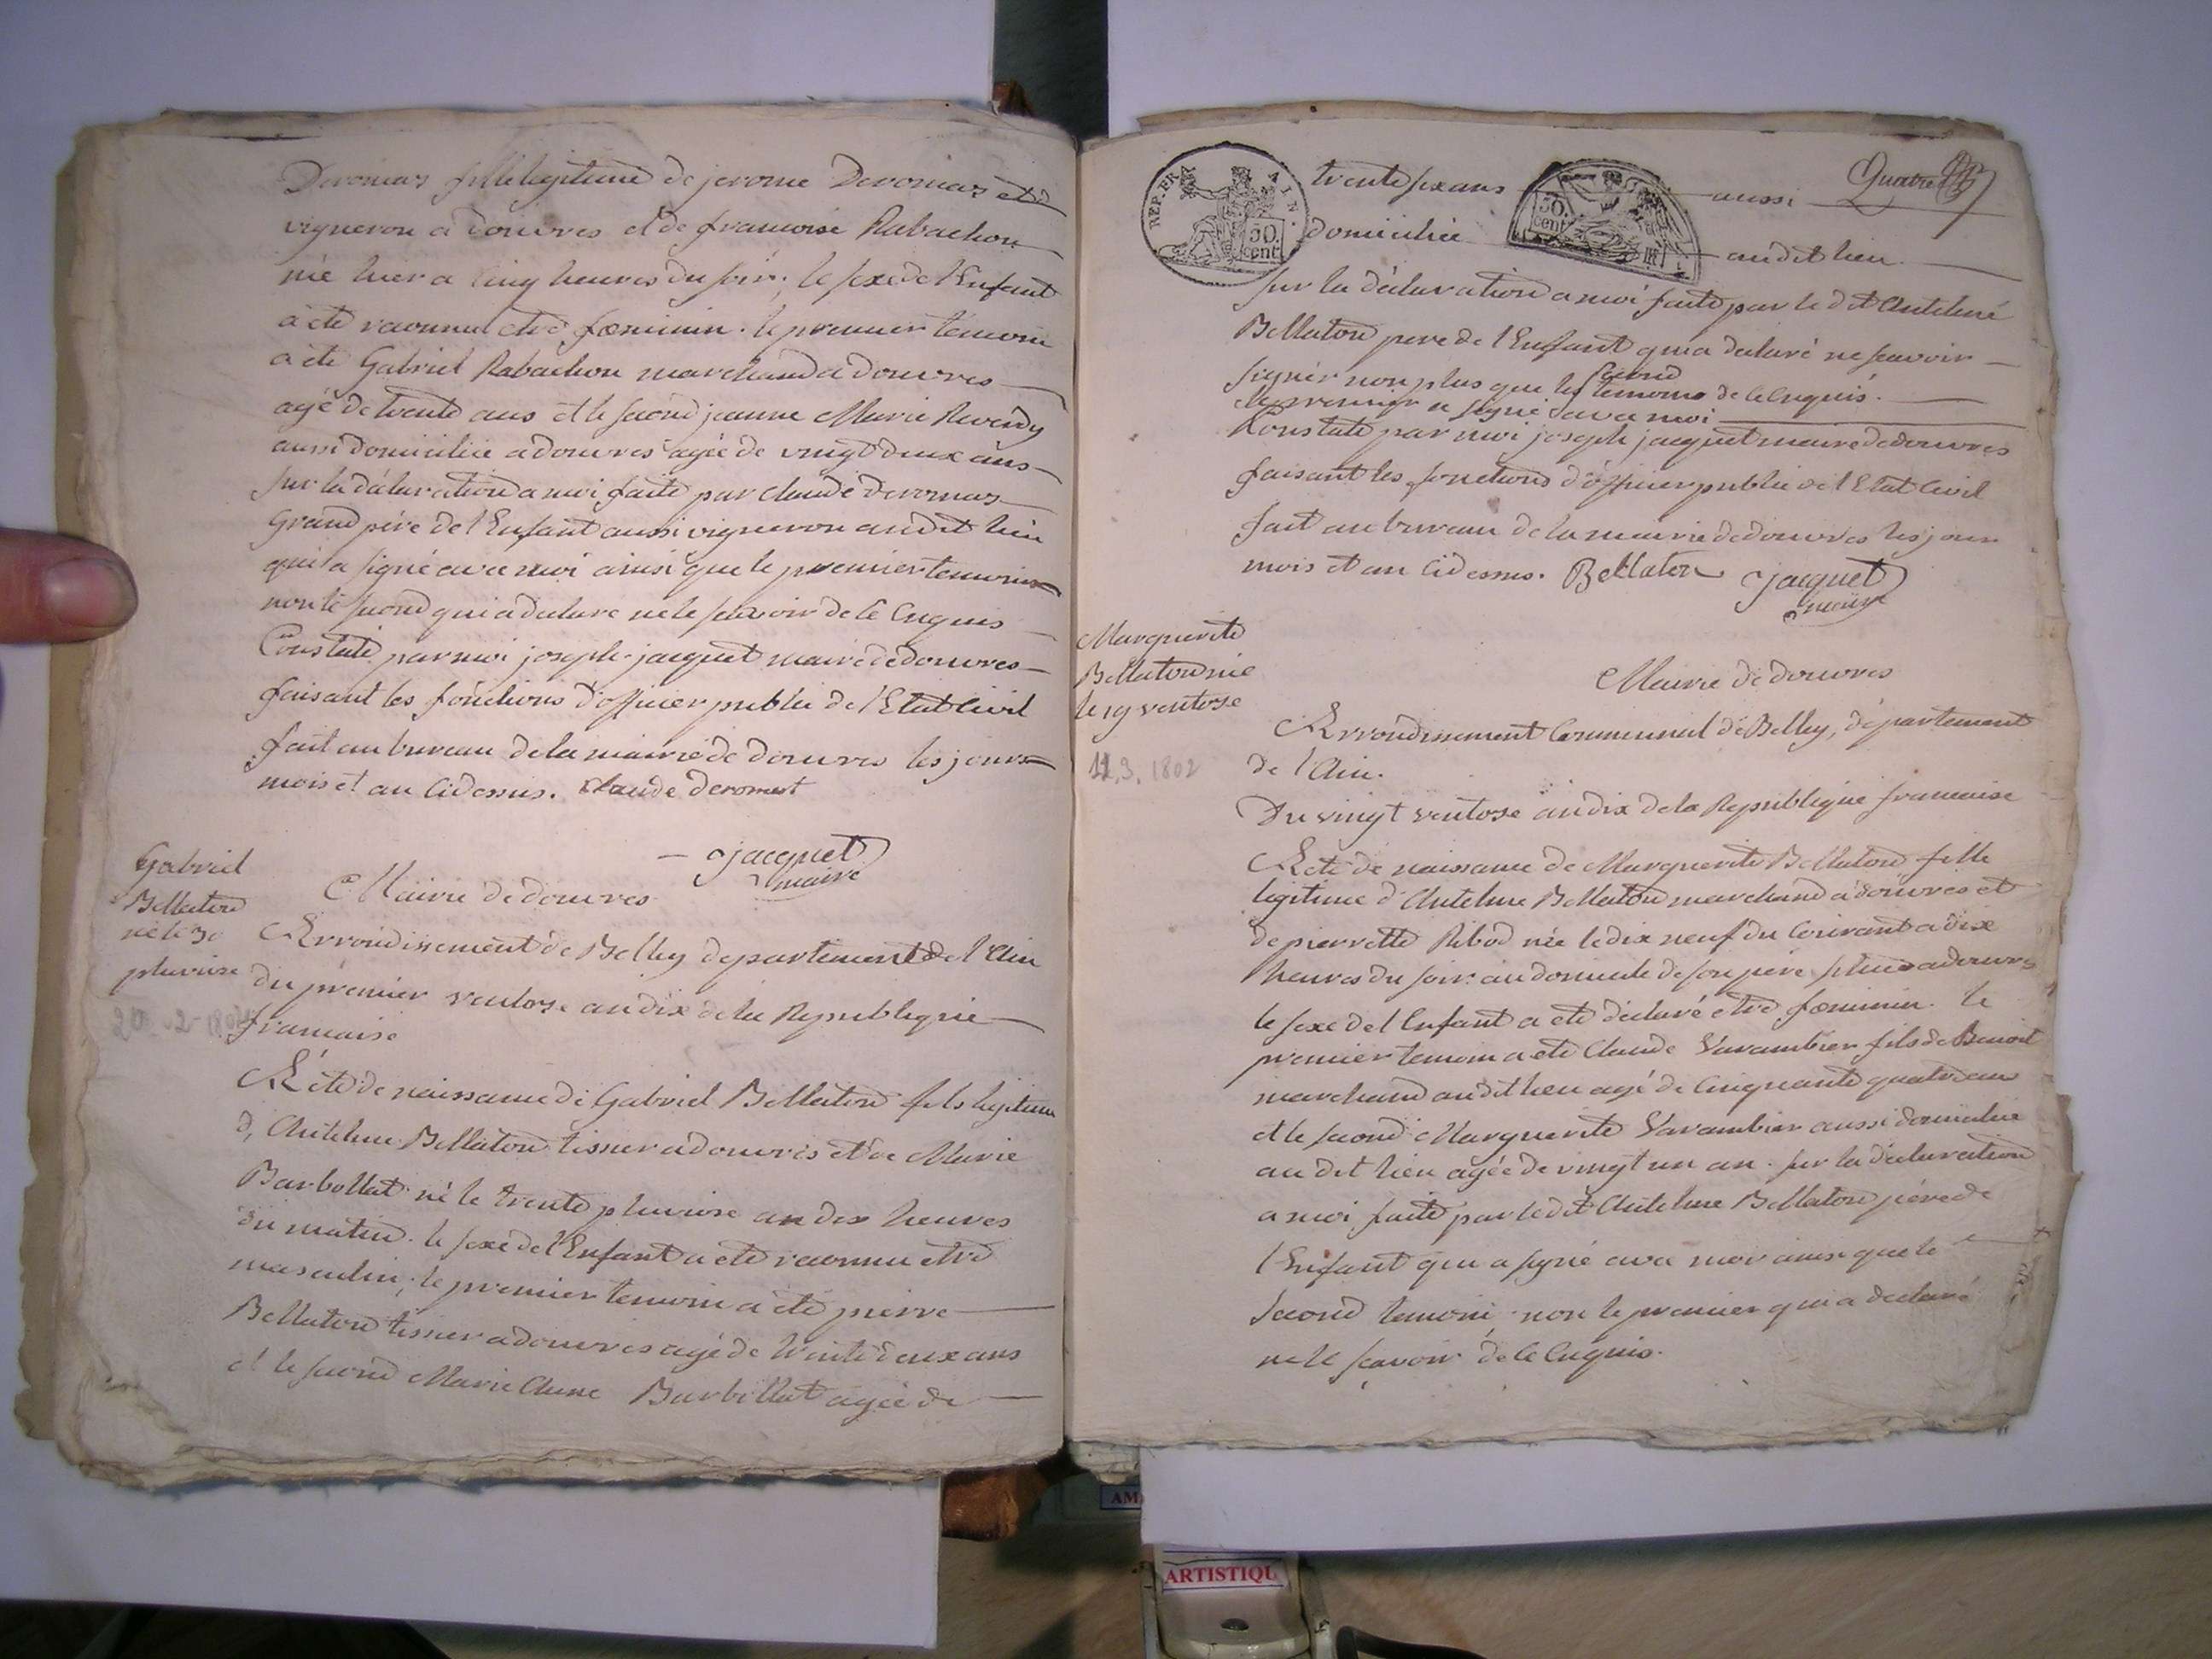 Deromas fille legitime de jerome Deromas
vigneron a douvres et de francoise Rabachon
née hier a cinq heures du soir; le sexe de l'Enfant
a été reconnu etre fœminin. le premier temoin
a été Gabriel Rabachon marchand a douvres
agé de trente ans et le second jeanne Marie Reverdy
aussi domiciliée a douvres agée de vingt deux ans
sur la déclaration a moi faite par claude deromas
grand pére de l'Enfant aussi vigneron au dit lieu
qui a signé avec moi ainsi que le premier temoin
non le second qui a declaré ne le scavoir de ce Enquis
Constaté par moi joseph jacquet maire de douvres
faisant les fonctions d'officier public de l'Etat Civil
fait au bureau de la mairie de douvres les jours
mois et an Cidessus. Claude deromast
jacquet
maire
Gabriel
Bellaton
né le 30
pluviose
Mairie de douvres
Arrondissement de Belley departement de l'Ain
du premier ventose an dix de la Republique
francaise
Acte de naissance de Gabriel Bellaton fils legitime
d'Antelme Bellaton tissier a douvres et de Marie
Barbollat né le trente pluviose an dix heures
du matin. le sexe de l'Enfant a eté reconnu etre
masculin; le premier temoin a été pierre
Bellaton tissier a douvres agé de trente deux ans
et le second Marie Anne Barbollat agée de
REP. FRA
50.
cent
trente six ans
50.
cent
aussi
Quatre
domiciliée
au dit lieu
sur la déclaration a moi faite par le dit Antelme
Bellaton pere de l'Enfant qui a declaré ne scavoir
signer non plus que le second temoins de ce Enquis.
le premier a signé avec moi
Constaté par moi joseph jacquet maire de douvres
faisant les fonctions d'officier public de l'Etat Civil
fait au bureau de la mairie de douvres les jour
mois et an Cidessus. Bellaton jacquet
maire
Marguerite
Bellaton née
le 19 ventose
11.3.1802
Mairie de douvres
Arrondissement Communal de Belley, département
de l'Ain.
Du vingt ventose an dix de la Republique francaise
Acte de naissance de Marguerite Bellaton fille
legitime d'Antelme Bellaton marchand a douvres et
de pierrette Ribod née le dix neuf du Courant a dix
heures du soir au domicile de son pére situé a douvres
le sexe de l'Enfant a eté declaré etre fœminin. le
premier temoin a eté Claude Varambier fils de Benoit
marchand au dit lieu agé de Cinquante quatre ans
et le second Marguerite Varambier aussi domiciliée
au dit lieu agée de vingt un an. sur la déclaration
a moi faite par le dit Antelme Bellaton pére de
l'Enfant qui a signé avec moi ainsi que le
second temoin, non le premier qui a declaré
ne le scavoir de ce Enquis.
ARTISTIQU